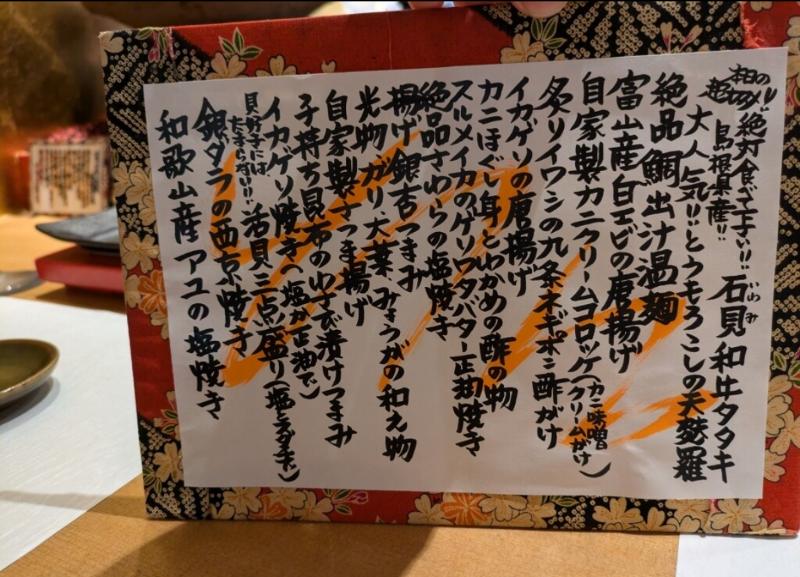 本日の
超オススメ!! 絶対食べて下さい!! 島根県産!! 石見和牛タタキ
いわみ
大人気!! とうもろこしの天麩羅
絶品 鯛出汁温麺
富山産白エビの唐揚げ
自家製カニクリームコロッケ(カニ味噌クリームがけ)
炙りイワシの九条ネギポン酢がけ
イカゲソの唐揚げ
カニほぐし身とわかめの酢の物
スルメイカのゲソワタバター正油焼き
絶品さわらの塩焼き
揚げ銀杏つまみ
光物ガリ大葉みょうがの和え物
自家製さつま揚げ
子持ち昆布のわさび漬けつまみ
イカゲソ焼き(塩か正油で)
貝好きにはたまらない!! 活貝三点盛り
銀ダラの西京焼き
和歌山産アユの塩焼き